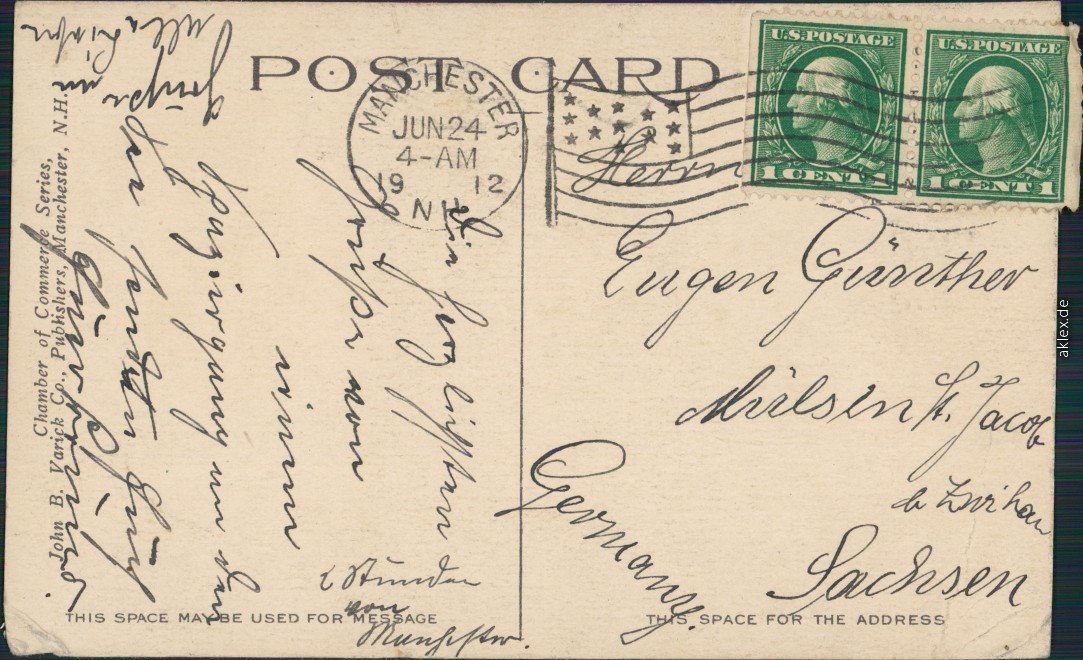 POST CARD
MANCHESTER
JUN 24
4-AM
1912
N.H.
U.S. POSTAGE
1 CENT 1
U.S. POSTAGE
1 CENT 1
Herrn
Eugen Günther
Mülsen St. Jacob
b Zwikau
Sachsen
Germany.
Die herzlichsten
Grüße von
einem
Spaziergang an den
2 Stunden
von
Manchester.
Chamber of Commerce Series,
John B. Varick Co., Publishers, Manchester, N.H.
THIS SPACE MAY BE USED FOR MESSAGE
THIS SPACE FOR THE ADDRESS
aklex.de